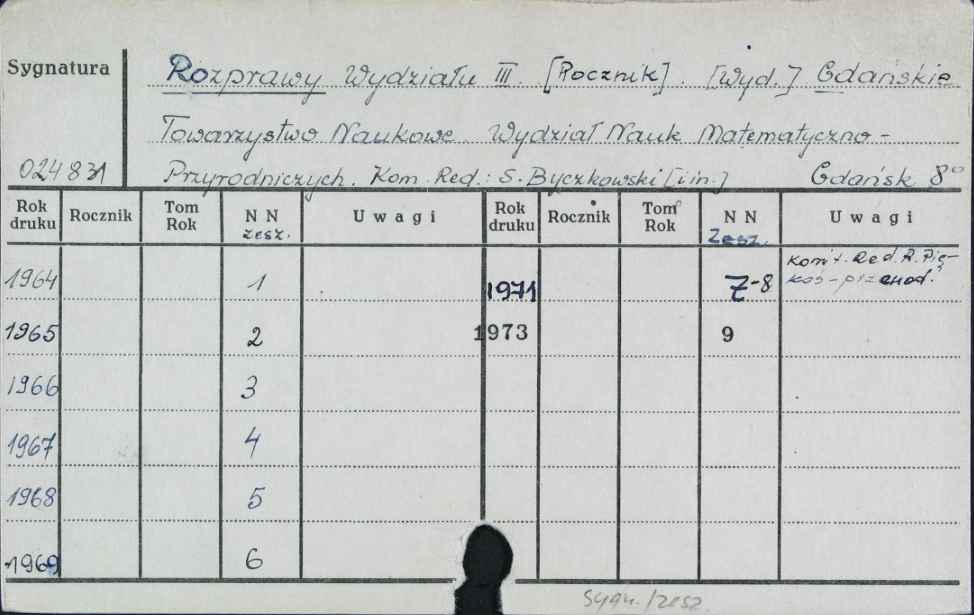 Sygnatura
Rozprawy Wydziału III. [Rocznik]. [Wyd.] Gdańskie
Towarzystwo Naukowe. Wydział Nauk Matematyczno-
024831 Przyrodniczych. Kom. Red.: S. Byczkowski [i in.] Gdańsk 8°
Rok druku Rocznik Tom Rok NN zesz. Uwagi Rok druku Rocznik Tom Rok NN Zesz. Uwagi
1964 1 1971 7-8 Komit. Red. R. Pię-
koś-przewod.
1965 2 1973 9
1966 3
1967 4
1968 5
1969 6
sygn./zesz.